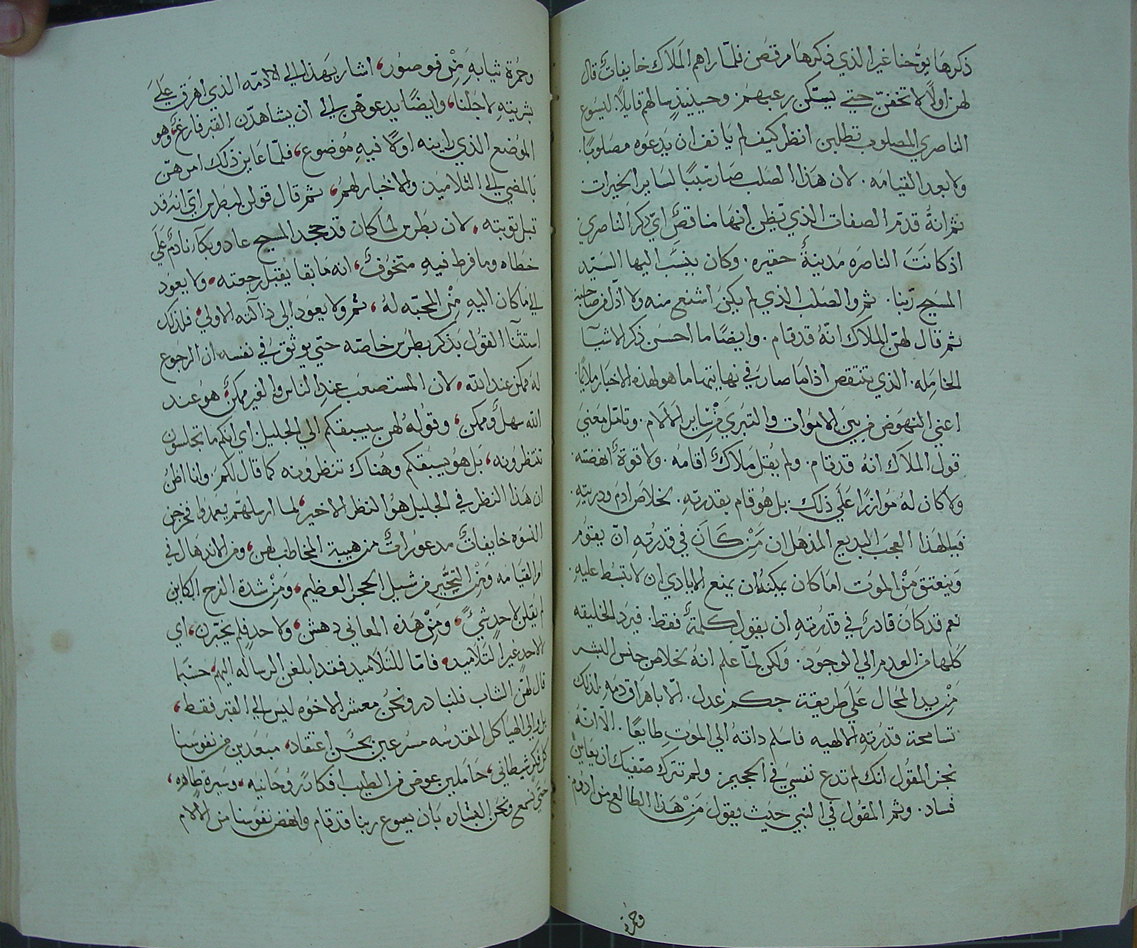 ذكرها يوحنا غير الذي ذكرها مرقص فلما راهم الملاك خايفات قال
لهن اولا لا تخفن حتي يسكن رعبهم. وحينيذ سالهم قايلا ليسوع
الناصري المصلوب تطلبن انظر كيف لم يانف ان يدعوه مصلوبا.
ولا بعد القيامه. لان هذا الصلب صار سببا لساير الخيرات
ثم انه قدم الصفات الذي يظن انها ناقصه اي ذكر الناصري
اذ كانت الناصره مدينة حقيره. وكان ينسب اليها السيد
المسيح ربنا. ثم والصلب الذي لم يكن اشنع منه ولا اذل
ثم قال لهن الملاك انه قد قام. وايضا ما احسن ذكر الاشيا
الخامله. الذي تنتقص اذا ما صار في نهايتها ما هو لهذه الاخبار
اعني النهوض من بين الاموات والتبري من ساير الالام. وتامل معني
قول الملاك انه قد قام. ولم يقل ملاك اقامه. ولا قوة انهضته
ولا كان له موازرا علي ذلك. بل هو قام بقدرته. لخلاص ادم وذريته
فيا لهذا العجب البديع المذهل ان من كان في قدرته ان يقوم
ويعتق من الموت اما كان يمكنه ان يمنع الايادي ان لا تبسط عليه.
نعم قد كان قادر في قدرته ان يقول كلمة فقط. فيرد الخليقه
كلها من العدم الي الوجود. ولكن لما علم انه لخلاص جنس البشر
من يد المحال علي طريقة حكم عدل. الا باهراق دمه لذلك
تسامحة قدرته الالهيه فاسلم ذاته الي الموت طايعا. الا انه
نجز المقول انك لم تدع نفسي في الجحيم. ولم تترك صفيك ان يعاين
فساد. وثم المقول في النبي حيث يقول من هذا الطالع من ادوم.
وحمرة
وحمرة ثيابه من فوصور، اشار بهذا الي الادمه الذي اهرق علي
بشريته لاجلنا، وايضا يدعوهن الي ان يشاهدن القبر فارغ، وهو
الموضع الذي اولا فيه موضوع، فلما عاين ذلك امرهن
بالمضي الي التلاميذ والاخبار لهم، ثم قال قولن لبطرس اي انه قد
قبل توبته، لان بطرس لما كان قد جحد المسيح عاد وبكا نادم علي
خطاه وما فرط فيه متخوف، انه ما بقا يقبل رجعته، ولا يعود
الي ما كان اليه من المحبه له، ثم ولا يعود الي ذاكته الاولي، فلذلك
استثنا القول بذكر بطرس خاصه حتي يوثق في نفسه ان الرجوع
له ممكن عند الله، لان المستصعب عند الناس والغير ممكن، هو عند
الله سهل وممكن، وقوله لهن يسبقكم الي الجليل اي انكم ما تجلسون
تنتظرونه، بل هو يسبقكم وهناك تنظرونه كما قال لكم، وانا اظن
ان هذا النظر في الجليل هو النظر الاخير، لما ارسلهم يعمدوا فخرجن
النسوه خايفات مدعورات من هيبة المخاطب لهن، ومن الاندهال في
امر القيامه ومن التحير من شيل الحجر العظيم، ومن شدة الفرح الكاين
لم يقلن لاحد شي، ومن هذه المعاني دهش، ولا حد فلم يخبرن، اي
لاحد غير التلاميد، فاما للتلاميد فقد ابلغن الرساله اليهم حسبما
قال لهن الشاب فلنبادر ونحن معشر الاخوه ليس الي القبر فقط،
بل والي الهياكل المقدسه مسرعين بحسن اعتقاد، مبعدين من نفوسنا
كل فكر شيطاني، حاملين عوض من الطيب افكار روحانيه، وسيره طاهره،
حتي نسمع ونحن البشاره بان يسوع ربنا قد قام وانهض نفوسنا من الالام